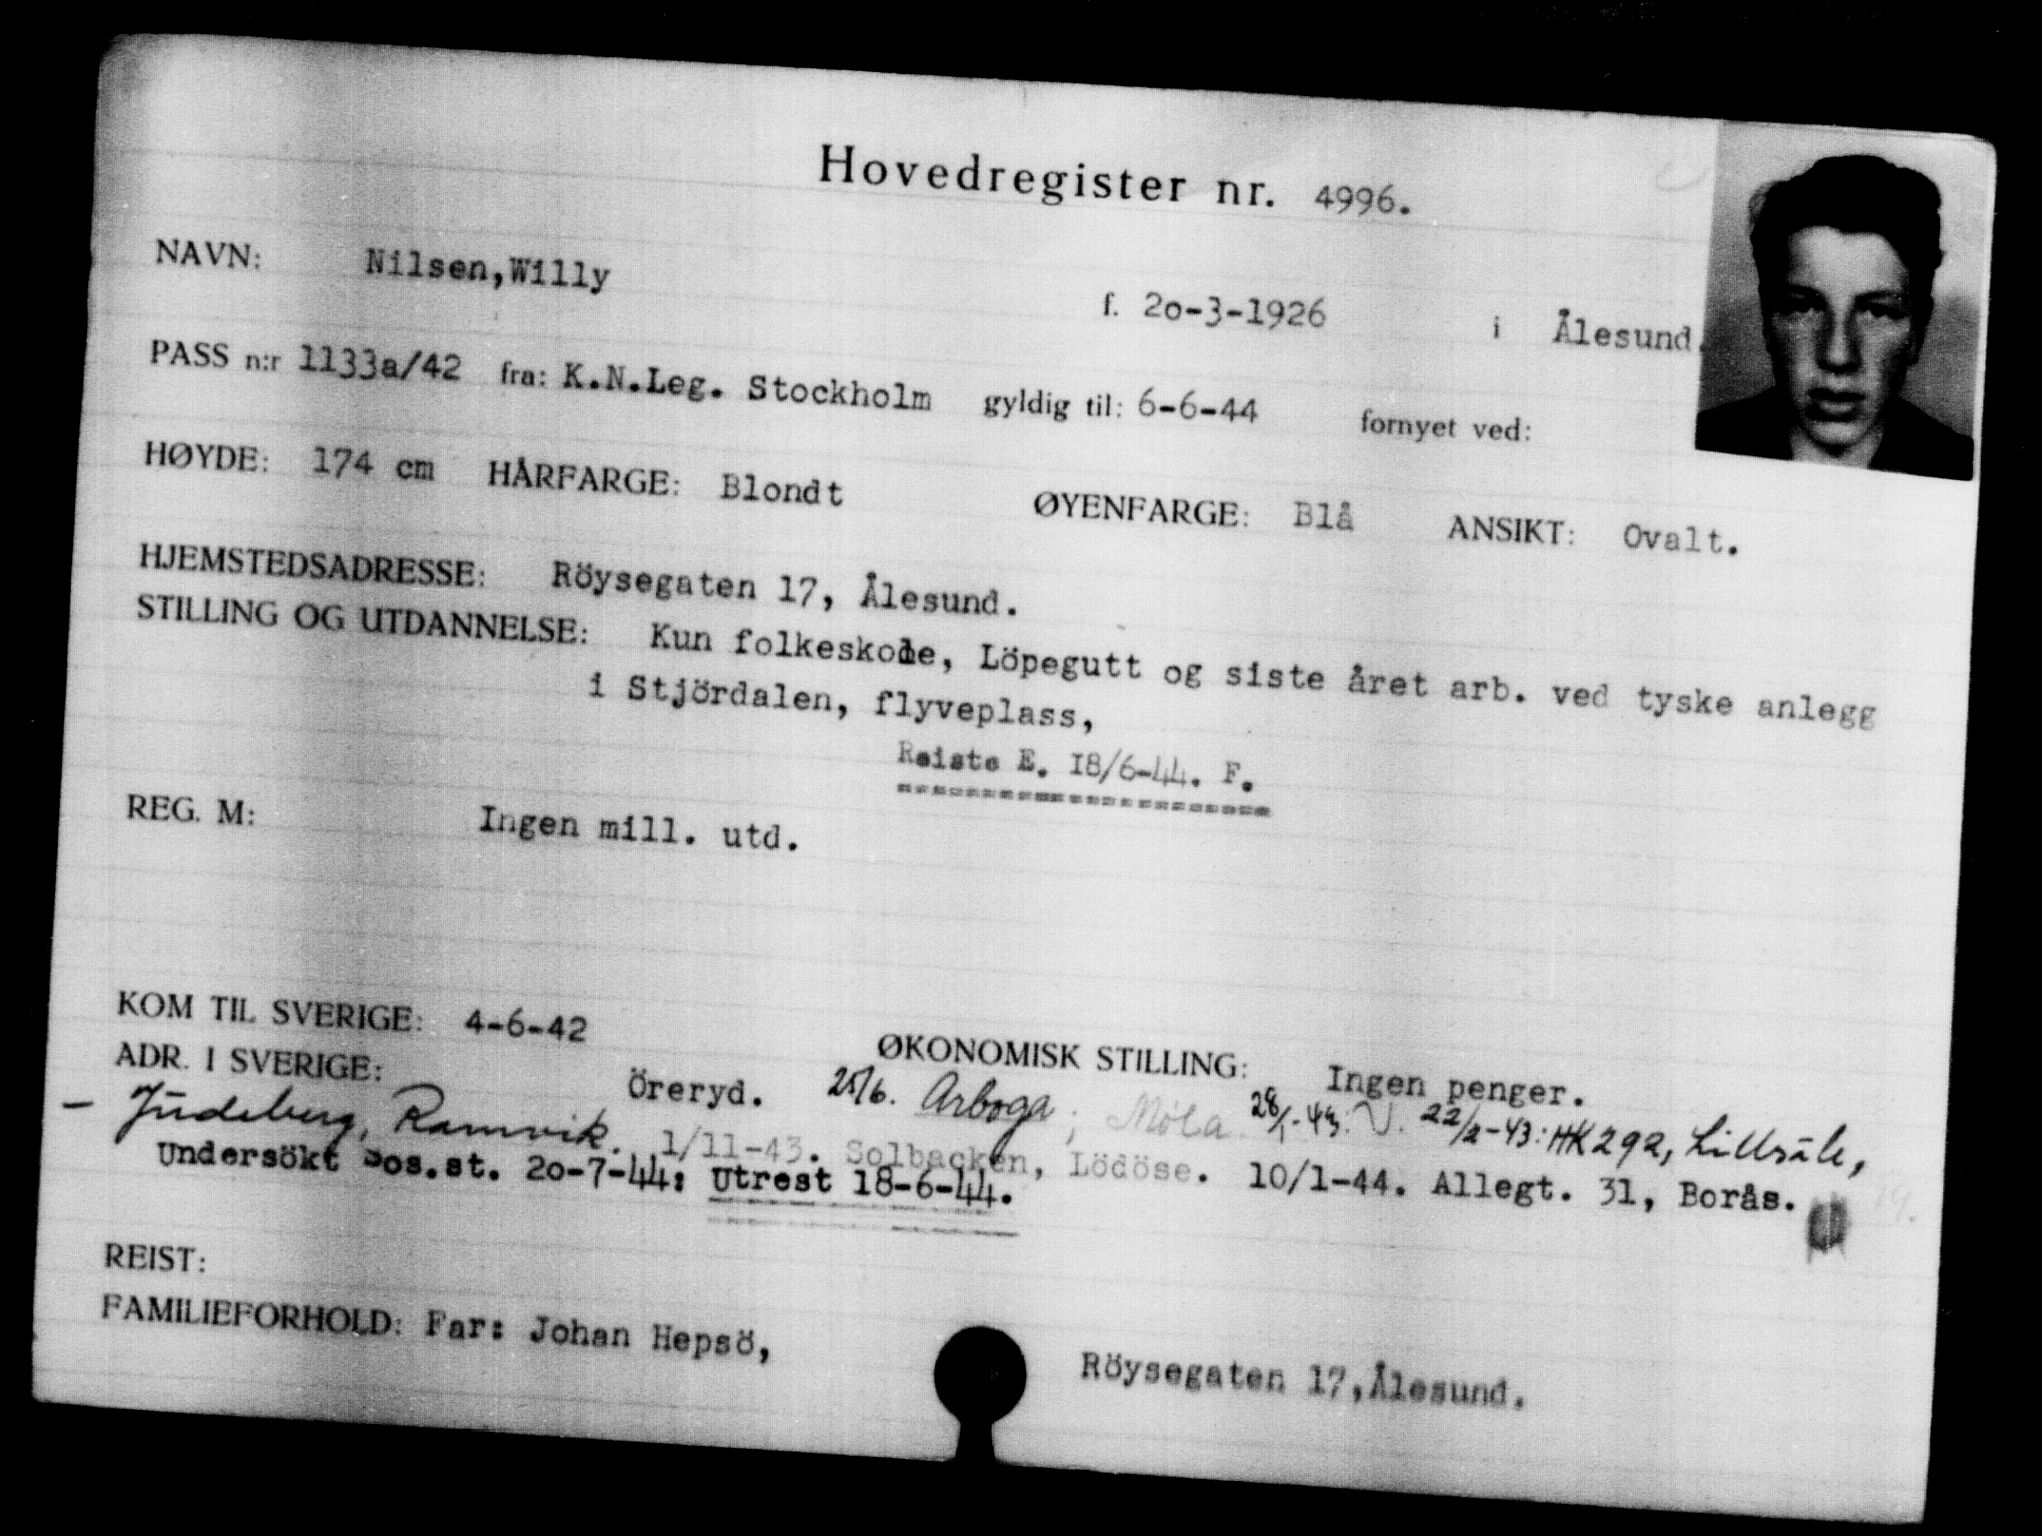 Hovedregister nr. 4996.
NAVN: Nilsen,Willy f. 2o-3-1926 i Ålesund.
PASS n:r 1133a/42 fra: K.N.Leg. Stockholm gyldig til: 6-6-44 fornyet ved:
HØYDE: 174 cm HÅRFARGE: Blondt ØYENFARGE: Blå ANSIKT: Ovalt.
HJEMSTEDSADRESSE: Röysegaten 17, Ålesund.
STILLING OG UTDANNELSE: Kun folkeskole, Löpegutt og siste året arb. ved tyske anlegg
i Stjördalen, flyveplass,
Reiste E. 18/6-44. F.
REG. M: Ingen mill. utd.
KOM TIL SVERIGE: 4-6-42 ØKONOMISK STILLING: Ingen penger.
ADR. I SVERIGE: Öreryd. 25/6. Arboga; 28/1-43: V. 22/2-43: HK292, Lillsäle,
– Judeberg, Ramvik. 1/11-43. Solbacken, Lödöse. 10/1-44. Allegt. 31, Borås.
Undersökt Sos.st. 2o-7-44: Utrest 18-6-44.
REIST:
FAMILIEFORHOLD: Far: Johan Hepsö, Röysegaten 17,Ålesund.